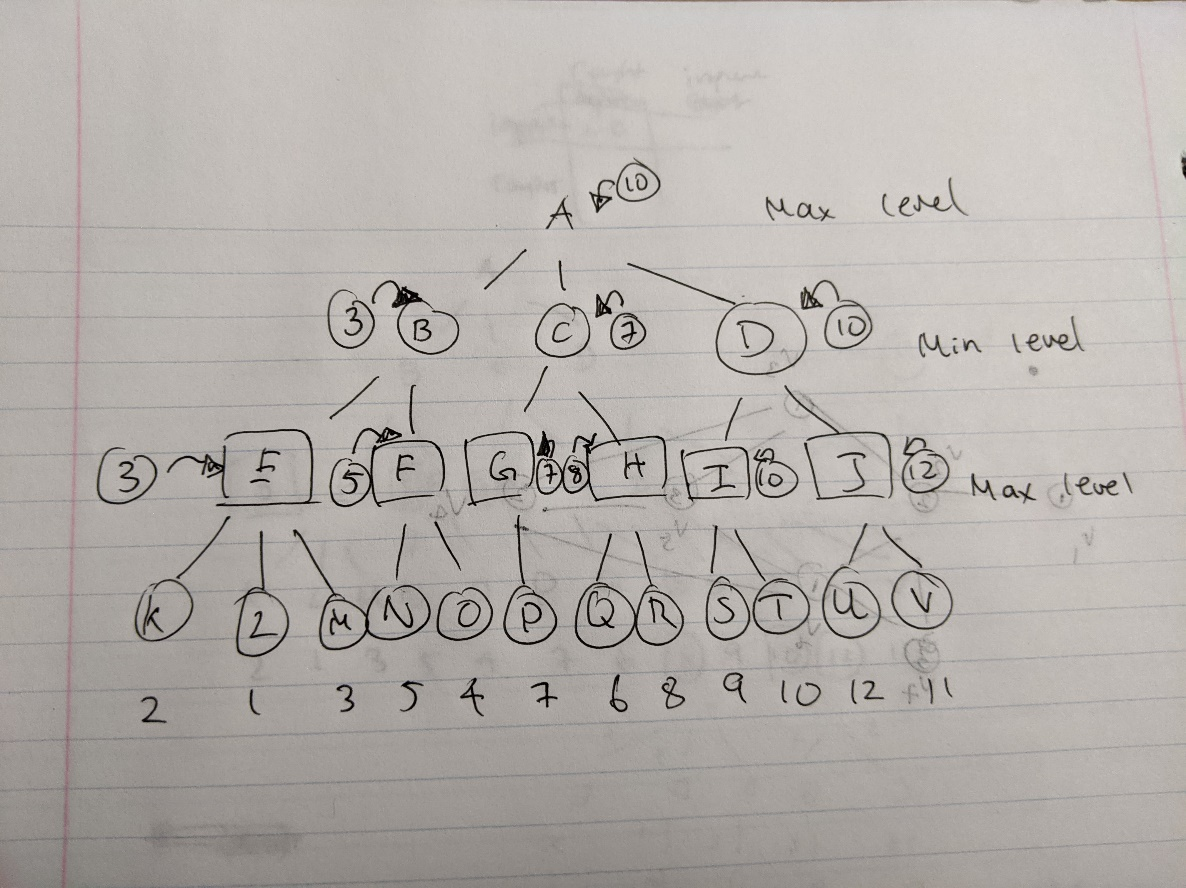 A 10 Max level
3 B C 7 D 10 Min level
3 E 5 F G 7 8 H I 10 J 12 Max level
K 2 M N O P Q R S T U V
2 1 3 5 4 7 6 8 9 10 12 11